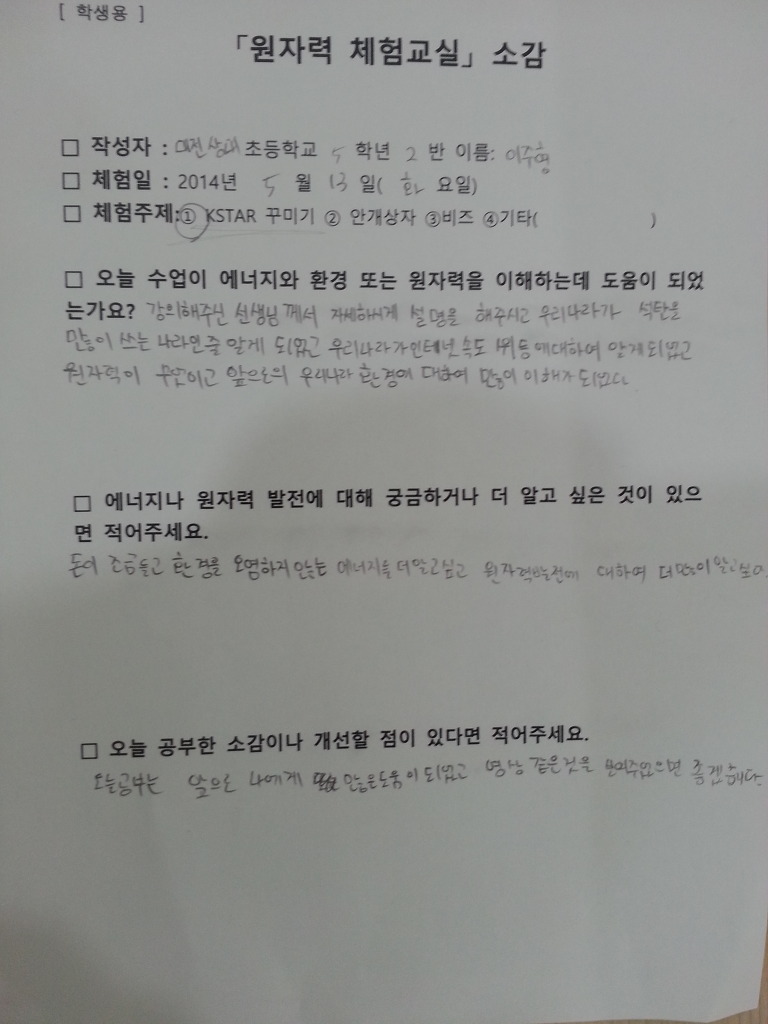 [ 학생용 ]
「원자력 체험교실」 소감
□ 작성자 : 대전상대 초등학교 5 학년 2 반 이름: 이주형
□ 체험일 : 2014년 5 월 13 일( 화 요일)
□ 체험주제:① KSTAR 꾸미기 ② 안개상자 ③비즈 ④기타( )
□ 오늘 수업이 에너지와 환경 또는 원자력을 이해하는데 도움이 되었
는가요? 강의해주신 선생님께서 자세하시게 설명을 해주시고 우리나라가 석탄을
많이 쓰는 나라인줄 알게 되었고 우리나라가 인터넷 속도 1위 등에 대하여 알게되었고
원자력이 무엇이고 앞으로의 우리나라 환경에 대하여 많이 이해가 되었다.
□ 에너지나 원자력 발전에 대해 궁금하거나 더 알고 싶은 것이 있으
면 적어주세요.
돈이 조금들고 환경을 오염하지 않는 에너지를 더알고싶고 원자력발전에 대하여 더많이 알고싶어
□ 오늘 공부한 소감이나 개선할 점이 있다면 적어주세요.
오늘공부는 앞으로 나에게 많은도움이 되었고 영상 같은것을 보여주었으면 좋겠습니다.